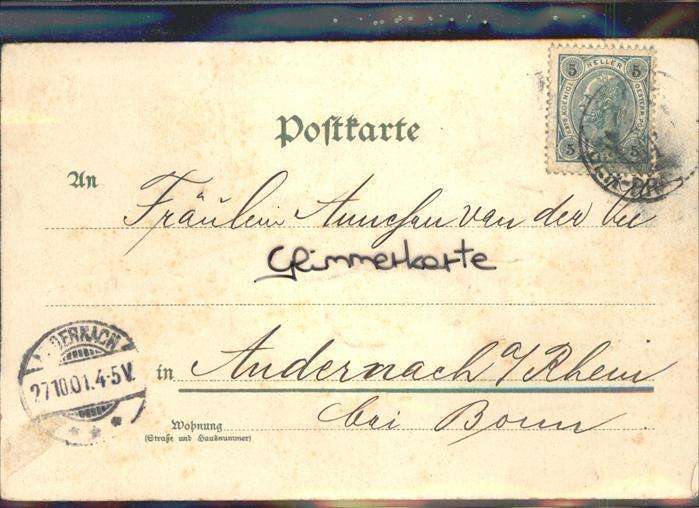 5 HELLER 5
5 5
Postkarte
An
Fräulein Annchen van der
Glimmerkarte
in Andernach a/Rhein
bei Bonn
Wohnung
(Straße und Hausnummer)
ANDERNACH
27.10.01.4-5V.